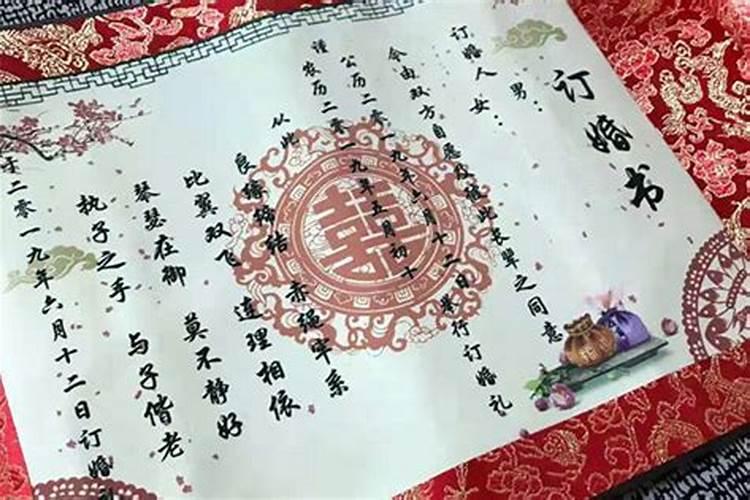 订婚书
男：
订婚人女：
令由双方自愿及征此长辈之同意
公历二零一九年六月十二日举行订婚礼
谨农历二零一九年五月初十
从此
良缘缔结 赤绳牢系
比翼双飞 连理相依
琴瑟在御 莫不静好
执子之手 与子偕老
于二零一九年六月十二日订婚
囍